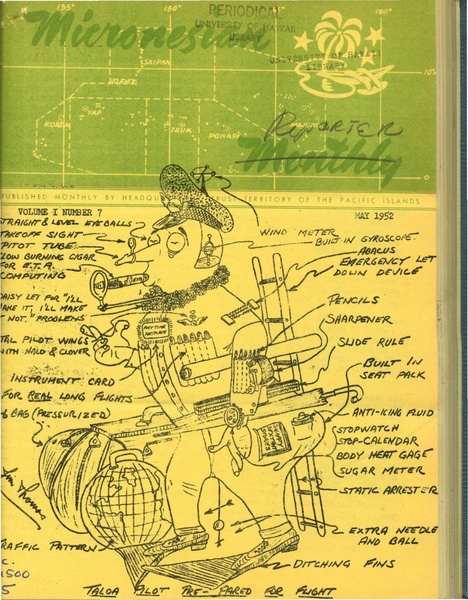 135°
150°
180°
PERIODICAL
UNIVERSITY OF HAWAII
LIBRARY
Micronesian
UNIVERSITY OF HAWAII
LIBRARY
SAIPAN
GUAM
10°
KOROR
YAP
TRUK
PONAPE
MAJURO
0
REPORTER
Monthly
PUBLISHED MONTHLY BY HEADQU TRUST TERRITORY OF THE PACIFIC ISLANDS
VOLUME I NUMBER 7
MAY 1952
STRAIGHT & LEVEL EYEBALLS
TAKEOFF SIGHT
PITOT TUBE
SLOW BURNING CIGAR
FOR E.T.A.
COMPUTING
DAISY LET FOR "I'LL
MAKE IT, I'LL MAKE
NOT." PROBLEMS
PILOT WINGS
WITH HALO & CLOVER
INSTRUMENT CARD
FOR REAL LONG FLIGHTS
BAG (PRESSURIZED)
TRAFFIC PATTERN
WIND METER
BUILT IN GYROSCOPE
ABACUS
EMERGENCY LET
DOWN DEVICE
PENCILS
SHARPENER
SLIDE RULE
BUILT IN
SEAT PACK
ANTI-KING FLUID
STOPWATCH
STOP-CALENDAR
BODY HEAT GAGE
SUGAR METER
STATIC ARRESTER
EXTRA NEEDLE
AND BALL
DITCHING FINS
ANYTIME
ANYPLACE
Jim Thomas
1500
5
TALOA PILOT PRE-PARED FOR FLIGHT